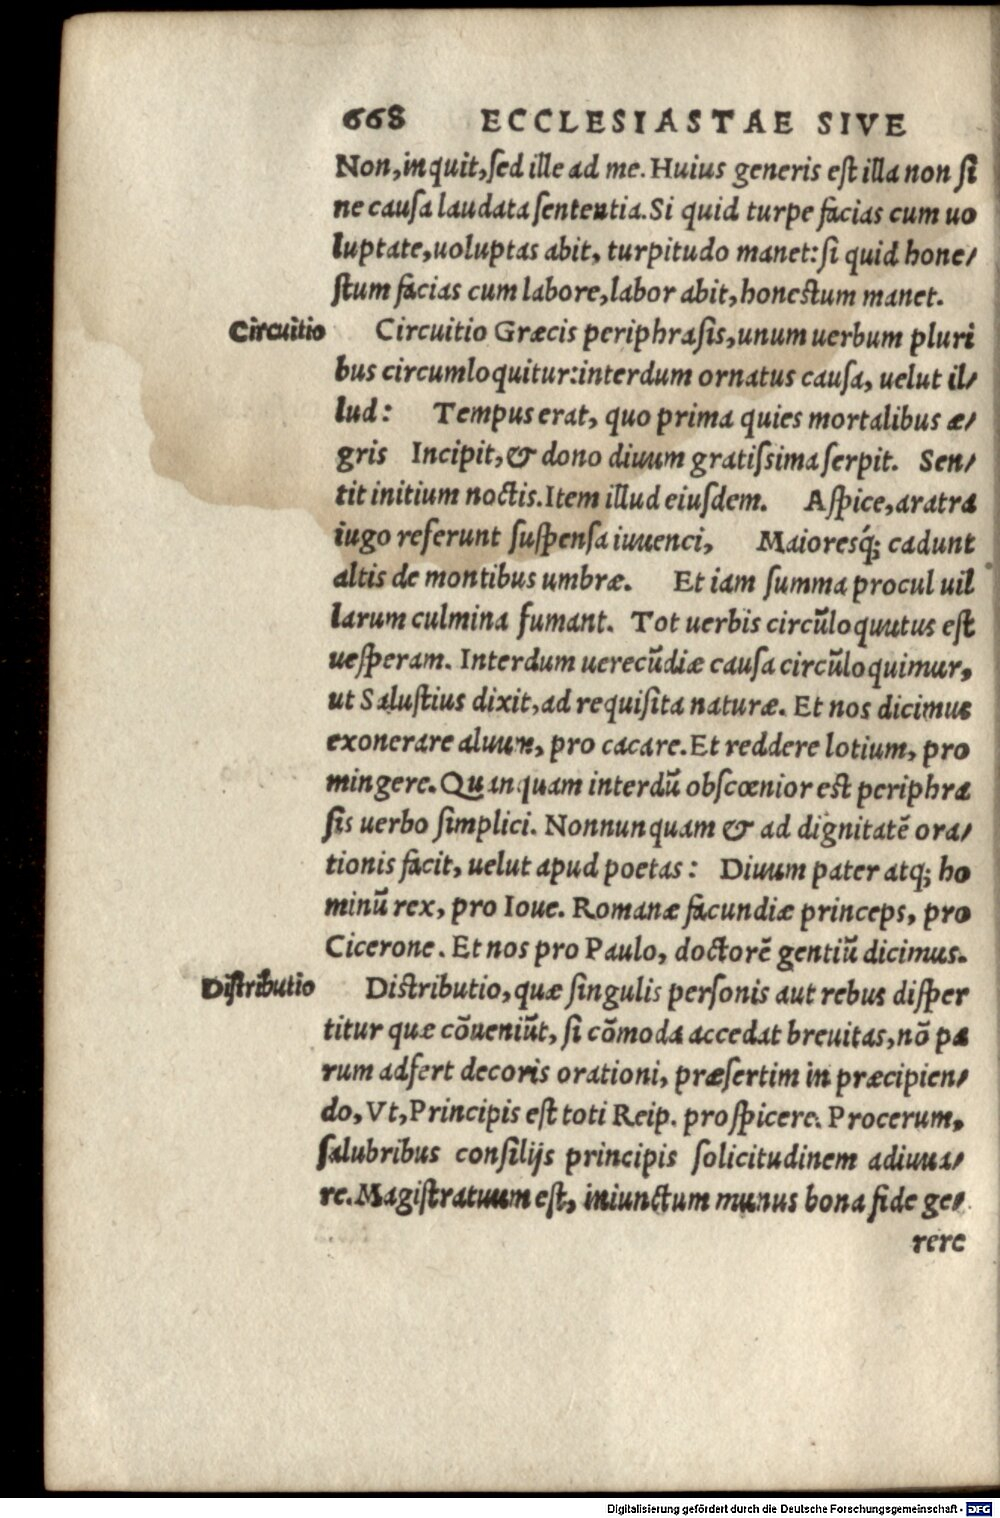 668 ECCLESIASTAE SIVE
Non, inquit, ſed ille ad me. Huius generis eſt illa non ſi
ne cauſa laudata ſententia. Si quid turpe facias cum uo
luptate, uoluptas abit, turpitudo manet: ſi quid hone/
ſtum facias cum labore, labor abit, honeſtum manet.
Circuitio
Circuitio Græcis periphraſis, unum uerbum pluri
bus circumloquitur: interdum ornatus cauſa, uelut il/
lud: Tempus erat, quo prima quies mortalibus æ/
gris Incipit, & dono diuum gratiſsima ſerpit. Sen/
tit initium noctis. Item illud eiuſdem. Aſpice, aratra
iugo referunt ſuſpenſa iuuenci, Maioresq́; cadunt
altis de montibus umbræ. Et iam ſumma procul uil
larum culmina fumant. Tot uerbis circũloquutus eſt
ueſperam. Interdum uerecũdiæ cauſa circũloquimur,
ut Saluſtius dixit, ad requiſita naturæ. Et nos dicimus
exonerare aluum, pro cacare. Et reddere lotium, pro
mingere. Quanquam interdũ obſcœnior eſt periphra
ſis uerbo ſimplici. Nonnunquam & ad dignitatẽ ora/
tionis facit, uelut apud poetas: Diuum pater atq; ho
minũ rex, pro Ioue. Romanæ facundiæ princeps, pro
Cicerone. Et nos pro Paulo, doctorẽ gentiũ dicimus.
Diſtributio
Diſtributio, quæ ſingulis perſonis aut rebus diſper
titur quæ cõueniũt, ſi cõmoda accedat breuitas, nõ pa
rum adfert decoris orationi, præſertim in præcipien/
do, Vt, Principis eſt toti Reip. proſpicere. Procerum,
ſalubribus conſilijs principis ſolicitudinem adiuua/
re. Magiſtratuum eſt, iniunctum munus bona fide ge/
rere
Digitalisierung gefördert durch die Deutsche Forschungsgemeinschaft - DFG